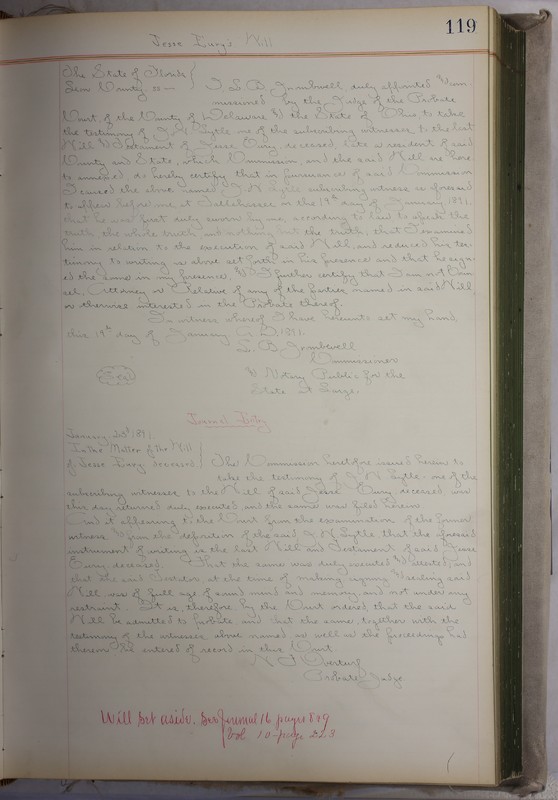 119
Jesse Eury's Will
The State of Florida
Leon County ss —
I, L. B. duly appointed Com-
missioned by the Judge of the Probate
Court, of the County of Delaware & the State of Ohio, to take
the testimony of J. N. Lytle one of the subscribing witnesses, to the last
Will & Testament of Jesse Eury, deceased, late a resident of said
County and State, which Commission, and the said Will are here
to annexed, do hereby certify that in pursuance of said Commission
I caused the above named J. N. Lytle subscribing witness as aforesaid
to appear before me at Tallahassee on the 19th day of January 1891,
that he was first duly sworn by me, according to law to speak the
truth the whole truth and nothing but the truth; that I examined
him in relation to the execution of said Will, and reduced his tes-
timony to writing as above set forth in his presence and that he sign-
ed the same in my presence, & I further certify that I am not Coun
sel, Attorney or Relative of any of the parties named in said Will
or otherwise interested in the Probate thereof.
In witness whereof I have hereunto set my hand,
this 19th day of January A.D. 1891.
L. B.
Commissioner
& Notary Public for the
State at Large.
Seal
Journal Entry
January 23d 1891
In the Matter of the Will
of Jesse Eury deceased
The Commission heretofore issued herein to
take the testimony of J. N. Lytle one of the
subscribing witnesses to the Will of said Jesse Eury deceased was
this day returned duly executed and the same was filed herein
And it appearing to the Court from the examination of the former
witness & from the deposition of the said J. N. Lytle that the aforesaid
instrument of writing is the last Will and Testament of said Jesse
Eury deceased. That the same was duly executed & attested, and
that the said Testator, at the time of making signing & sealing said
Will was of full age of sound mind and memory, and not under any
restraint. It is therefore by the Court ordered, that the said
Will be admitted to probate and that the same, together with the
testimony of the witnesses above named as well as the proceedings had
thereon be entered of record in this Court
Overturf
Probate Judge
Will set aside. See Journal 16 page 809
Vol 10 - page 223